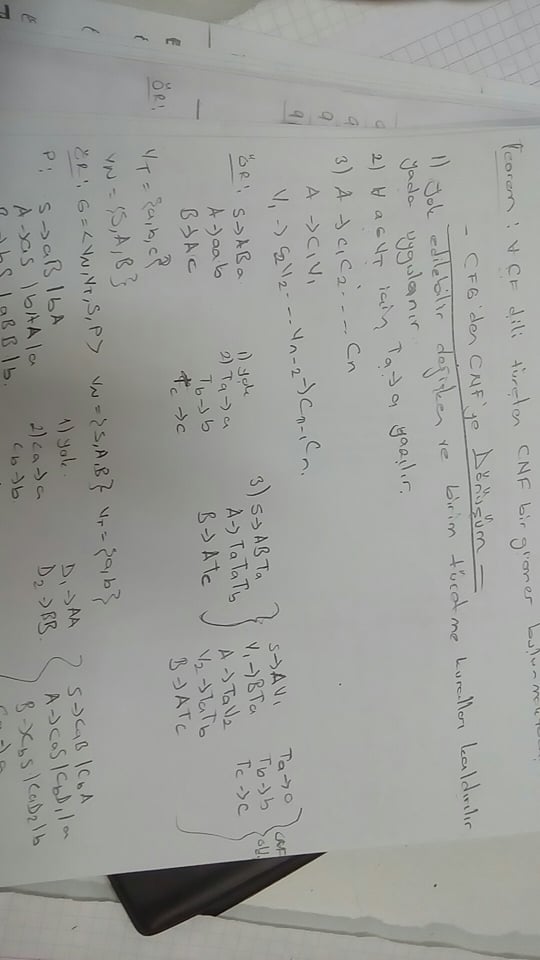 Teorem: ∀ CF dili türeten CNF bir gramer
- CFG'den CNF'ye Dönüşüm -
1) Yok edilebilir değişken ve birim türetme kuralları kaldırılır
yada uygulanır.
2) ∀ a∈VT için Ta→a yazılır.
3) A → C1 C2 ... Cn
A → C1V1
V1 → C2V2 ... Vn-2→Cn-1Cn.
ÖR: S→ABa
A→aab
B→Ac
1) yok
2) Ta→a
Tb→b
Tc→c
3) S→ABTa
A→TaTaTb
B→ATc
S→AV1
V1→BTa
A→TaV2
V2→TaTb
B→ATc
Ta→a
Tb→b
Tc→c
CNF
ÖR:
VT={a,b,c}
VN={S,A,B}
ÖR: G=<VN,VT,S,P> VN={S,A,B} VT={a,b}
P: S→aB|bA
A→aS|bAA|a
B→bS|aBB|b.
1) yok.
2) Ca→a
Cb→b
D1→AA
D2→BB.
S→CaB|CbA
A→CaS|CbD1|a
B→CbS|CaD2|b
Ca→a